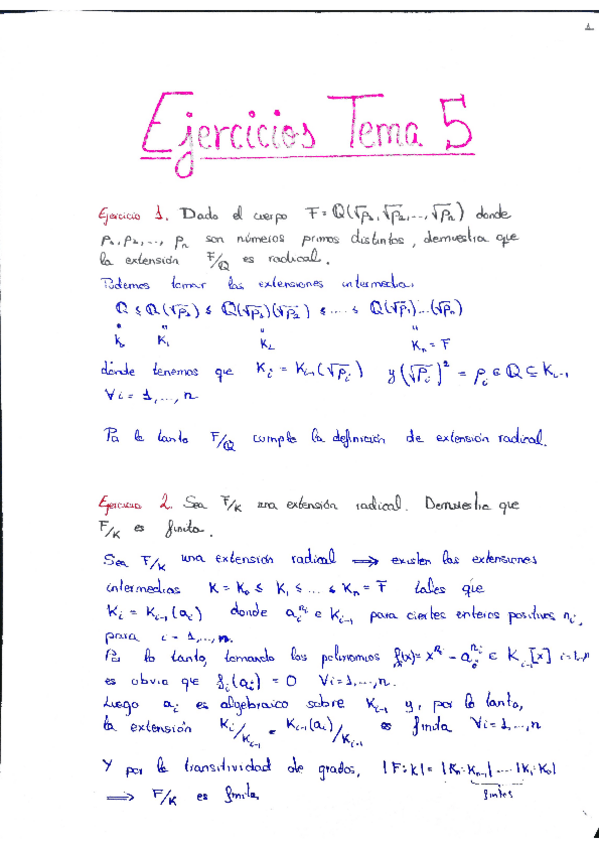 1
Ejercicios Tema 5
Ejercicio 1. Dado el cuerpo F = Q(√p₁, √p₂, ..., √pₙ) donde
p₁, p₂, ..., pₙ son números primos distintos, demuestra que
la extensión F/Q es radical.
Podemos tomar las extensiones intermedia:
Q ≤ Q(√p₁) ≤ Q(√p₁)(√p₂) ≤ .... ≤ Q(√p₁)...(√pₙ)
K₀ K₁ K₂ Kₙ = F
dónde tenemos que Kᵢ = Kᵢ₋₁(√pᵢ) y (√pᵢ)² = pᵢ ∈ Q ⊆ Kᵢ₋₁
∀i = 1, ..., n
Por lo tanto F/Q cumple la definición de extensión radical.
Ejercicio 2. Sea F/K una extensión radical. Demuestra que
F/K es finita.
Sea F/K una extensión radical ⟹ existen las extensiones
intermedias K = K₀ ≤ K₁ ≤ ... ≤ Kₙ = F tales que
Kᵢ = Kᵢ₋₁(aᵢ) donde aᵢⁿⁱ ∈ Kᵢ₋₁ para ciertos enteros positivos nᵢ,
para i = 1, ..., n.
Por lo tanto, tomando los polinomios fᵢ(x) = xⁿⁱ - aᵢⁿⁱ ∈ Kᵢ₋₁[x] i=1,..,n
es obvio que fᵢ(aᵢ) = 0 ∀i=1,...,n.
Luego aᵢ es algebraico sobre Kᵢ₋₁ y, por lo tanto,
la extensión Kᵢ/Kᵢ₋₁ = Kᵢ₋₁(aᵢ)/Kᵢ₋₁ es finita ∀i=1,...,n
Y por la transitividad de grados, |F:K| = |Kₙ:Kₙ₋₁| .... |K₁:K₀|
⟹ F/K es finita. finitos